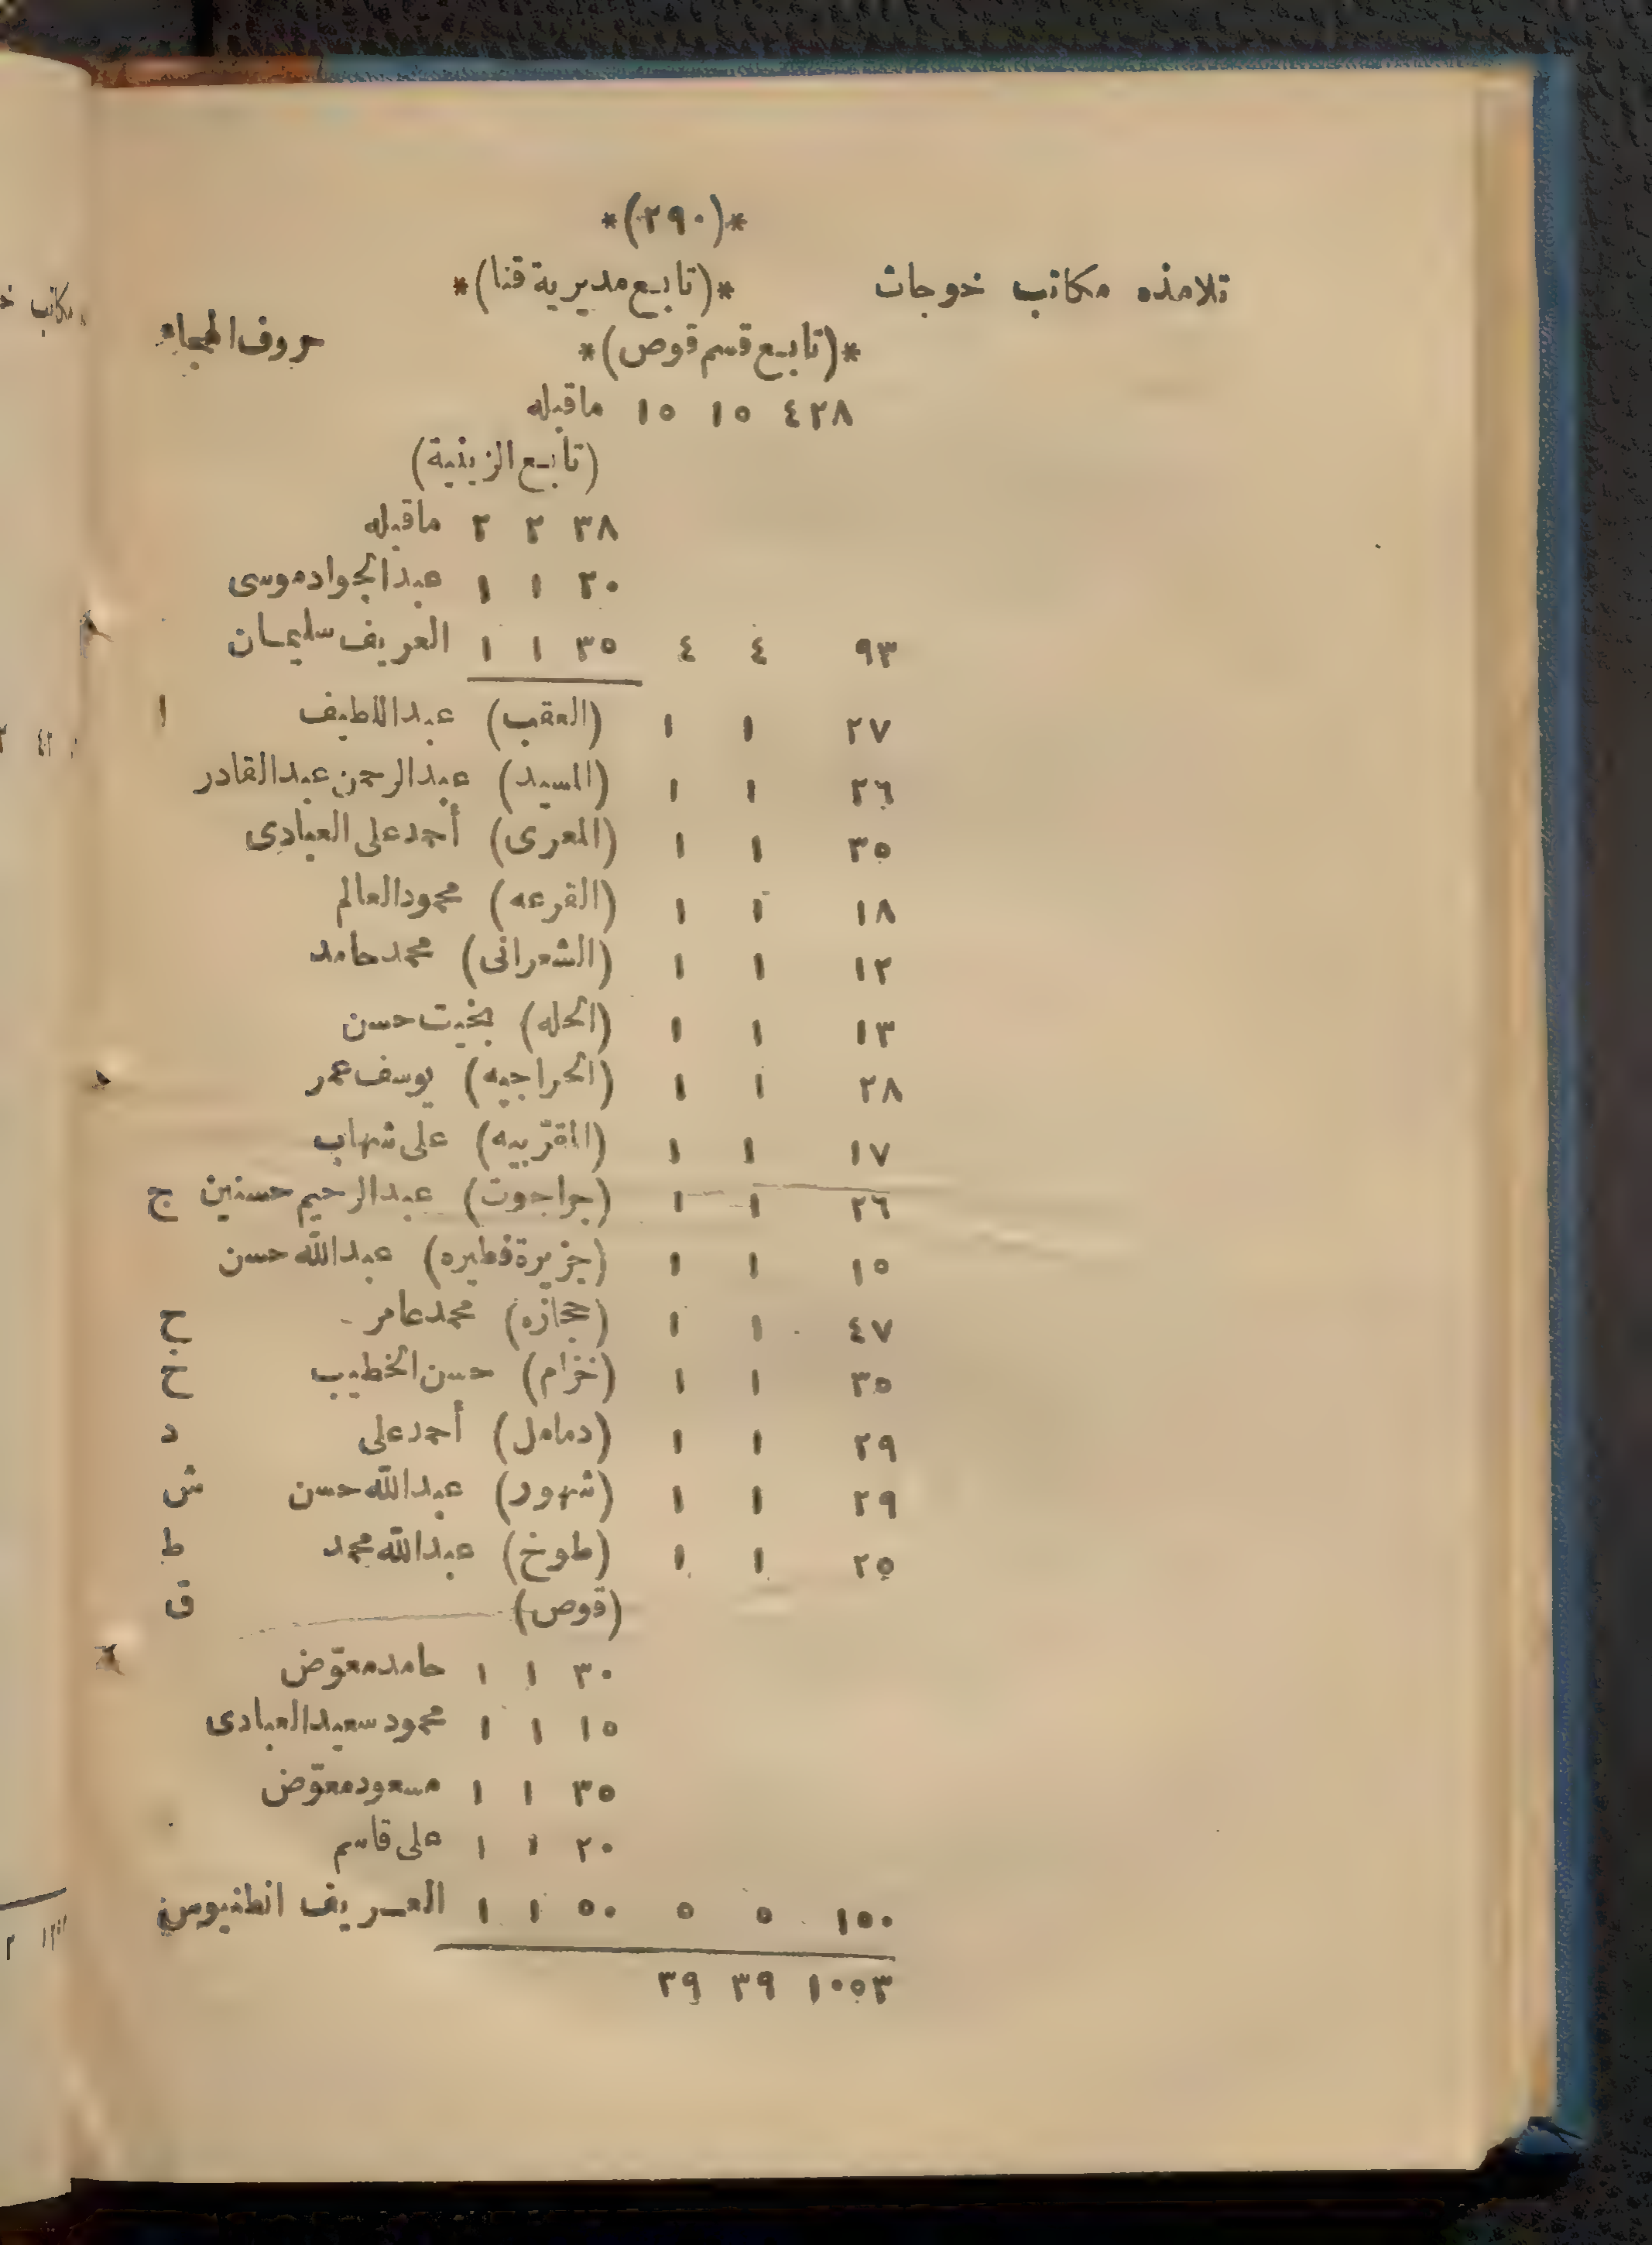 *(٢٩٠)*
تلامذه مكاتب خوجات *(تابع مديرية قنا)*
*(تابع قسم قوص)* حروف الهجاء
٤٢٨ ١٥ ١٥ ماقبله
(تابع الزينية)
٣٨ ٢ ٢ ماقبله
٢٠ ١ ١ عبدالجواد موسى
٩٣ ٤ ٤ ٣٥ ١ ١ العريف سليمان
٢٧ ١ ١ (العقب) عبداللطيف ا
٢٦ ١ ١ (المسيد) عبدالرحمن عبدالقادر
٣٥ ١ ١ (المعرى) أحمد على العبادى
١٨ ١ ١ (القرعه) محمود العالم
١٢ ١ ١ (الشعرانى) محمد حامد
١٣ ١ ١ (الحله) بخيت حسن
٢٨ ١ ١ (الحراجيه) يوسف عمر
١٧ ١ ١ (المقرّبيه) على شهاب
٢٦ ١ ١ (جراجوت) عبدالرحيم حسنين ج
١٥ ١ ١ (جزيرة فطيره) عبدالله حسن
٤٧ ١ ١ (حجازه) محمد عامر ح
٣٥ ١ ١ (خزام) حسن الخطيب خ
٢٩ ١ ١ (دمامل) أحمد على د
٢٩ ١ ١ (شهور) عبدالله حسن ش
٢٥ ١ ١ (طوخ) عبدالله محمد ط
(قوص) ق
٣٠ ١ ١ حامد معوّض
١٥ ١ ١ محمود سعيد العبادى
٣٥ ١ ١ مسعود معوّض
٢٠ ١ ١ على قاسم
١٥٠ ٥ ٥ ٥٠ ١ ١ العريف انطنيوس
١٠٥٣ ٣٩ ٣٩